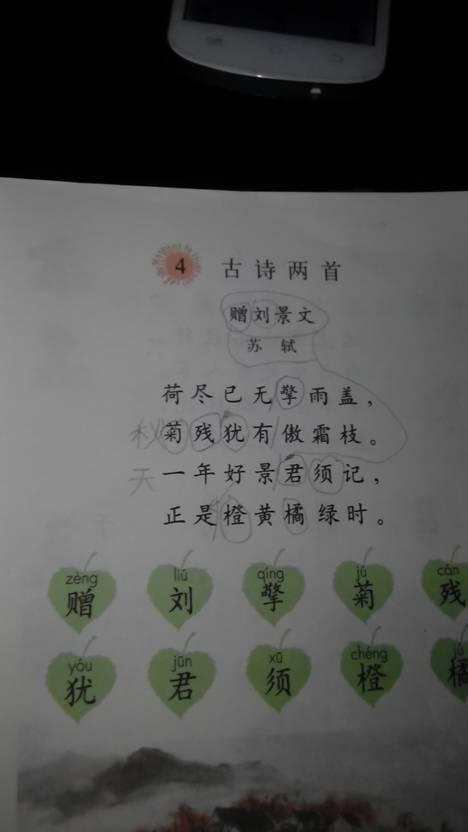 4 古诗两首
赠刘景文
苏轼
荷尽已无擎雨盖，
菊残犹有傲霜枝。
一年好景君须记，
正是橙黄橘绿时。
秋
天
zèng liú qíng jú cán
赠 刘 擎 菊 残
yóu jūn xū chéng jú
犹 君 须 橙 橘